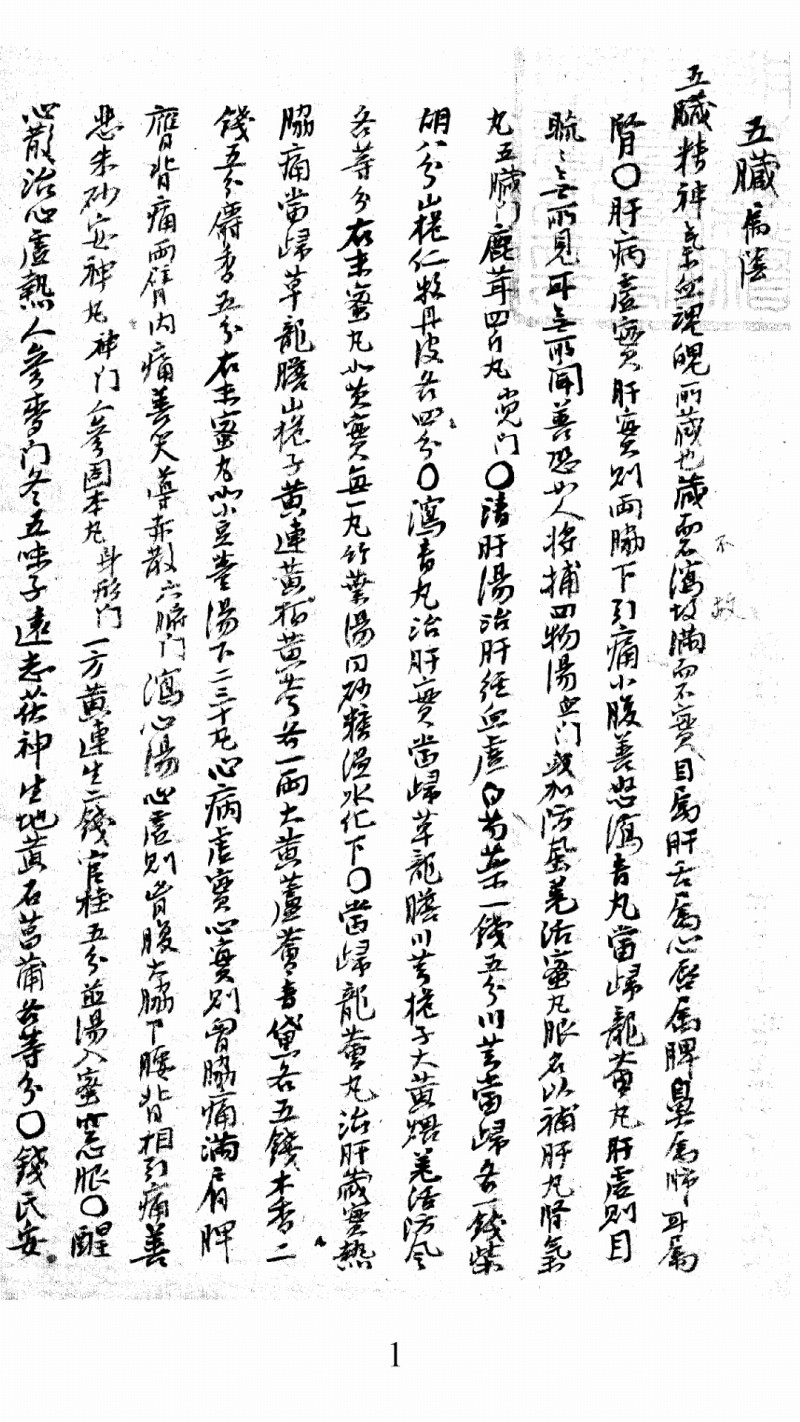 五臟 属陰
五臟精神氣血魂魄所藏也藏而不瀉故滿而不實目属肝舌属心唇属脾鼻属肺耳属
腎〇肝病虛實肝實則兩脇下引痛小腹善怒瀉青丸當歸龍薈丸肝虛則目
䀮〻無所見耳無所聞善恐如人將捕四物湯血门或加防風羌活蜜丸服名以補肝丸腎氣
丸五臟门鹿茸四斤丸 〇清肝湯治肝経血虛白芍藥一錢五分川芎當歸各一錢柴
胡八分山梔仁牧丹皮各四分〇瀉青丸治肝實當歸草龍膽川芎梔子大黄煨羌活防风
各等分右末蜜丸小芡實每一丸竹葉湯同砂糖温水化下〇當歸龍薈丸治肝藏實熱
脇痛當歸草龍膽山梔子黄連黄栢黄芩各一兩大黄蘆薈青黛各五錢木香二
錢五分麝香五分右末蜜丸如小豆薑湯下二三十丸心病虛實心實則胷脇痛滿肩胛
膺背痛兩臂内痛善笑導赤散六腑门瀉心湯心虛則胷腹大脇下腰背相引痛善
悲朱砂安神丸神门人參固本丸身形门一方黄連生二錢官桂五分煎湯入蜜空心服〇醒
心散治心虛熱人參麥门冬五味子遠志茯神生地黄石菖蒲各等分〇錢氏安
不
故
1